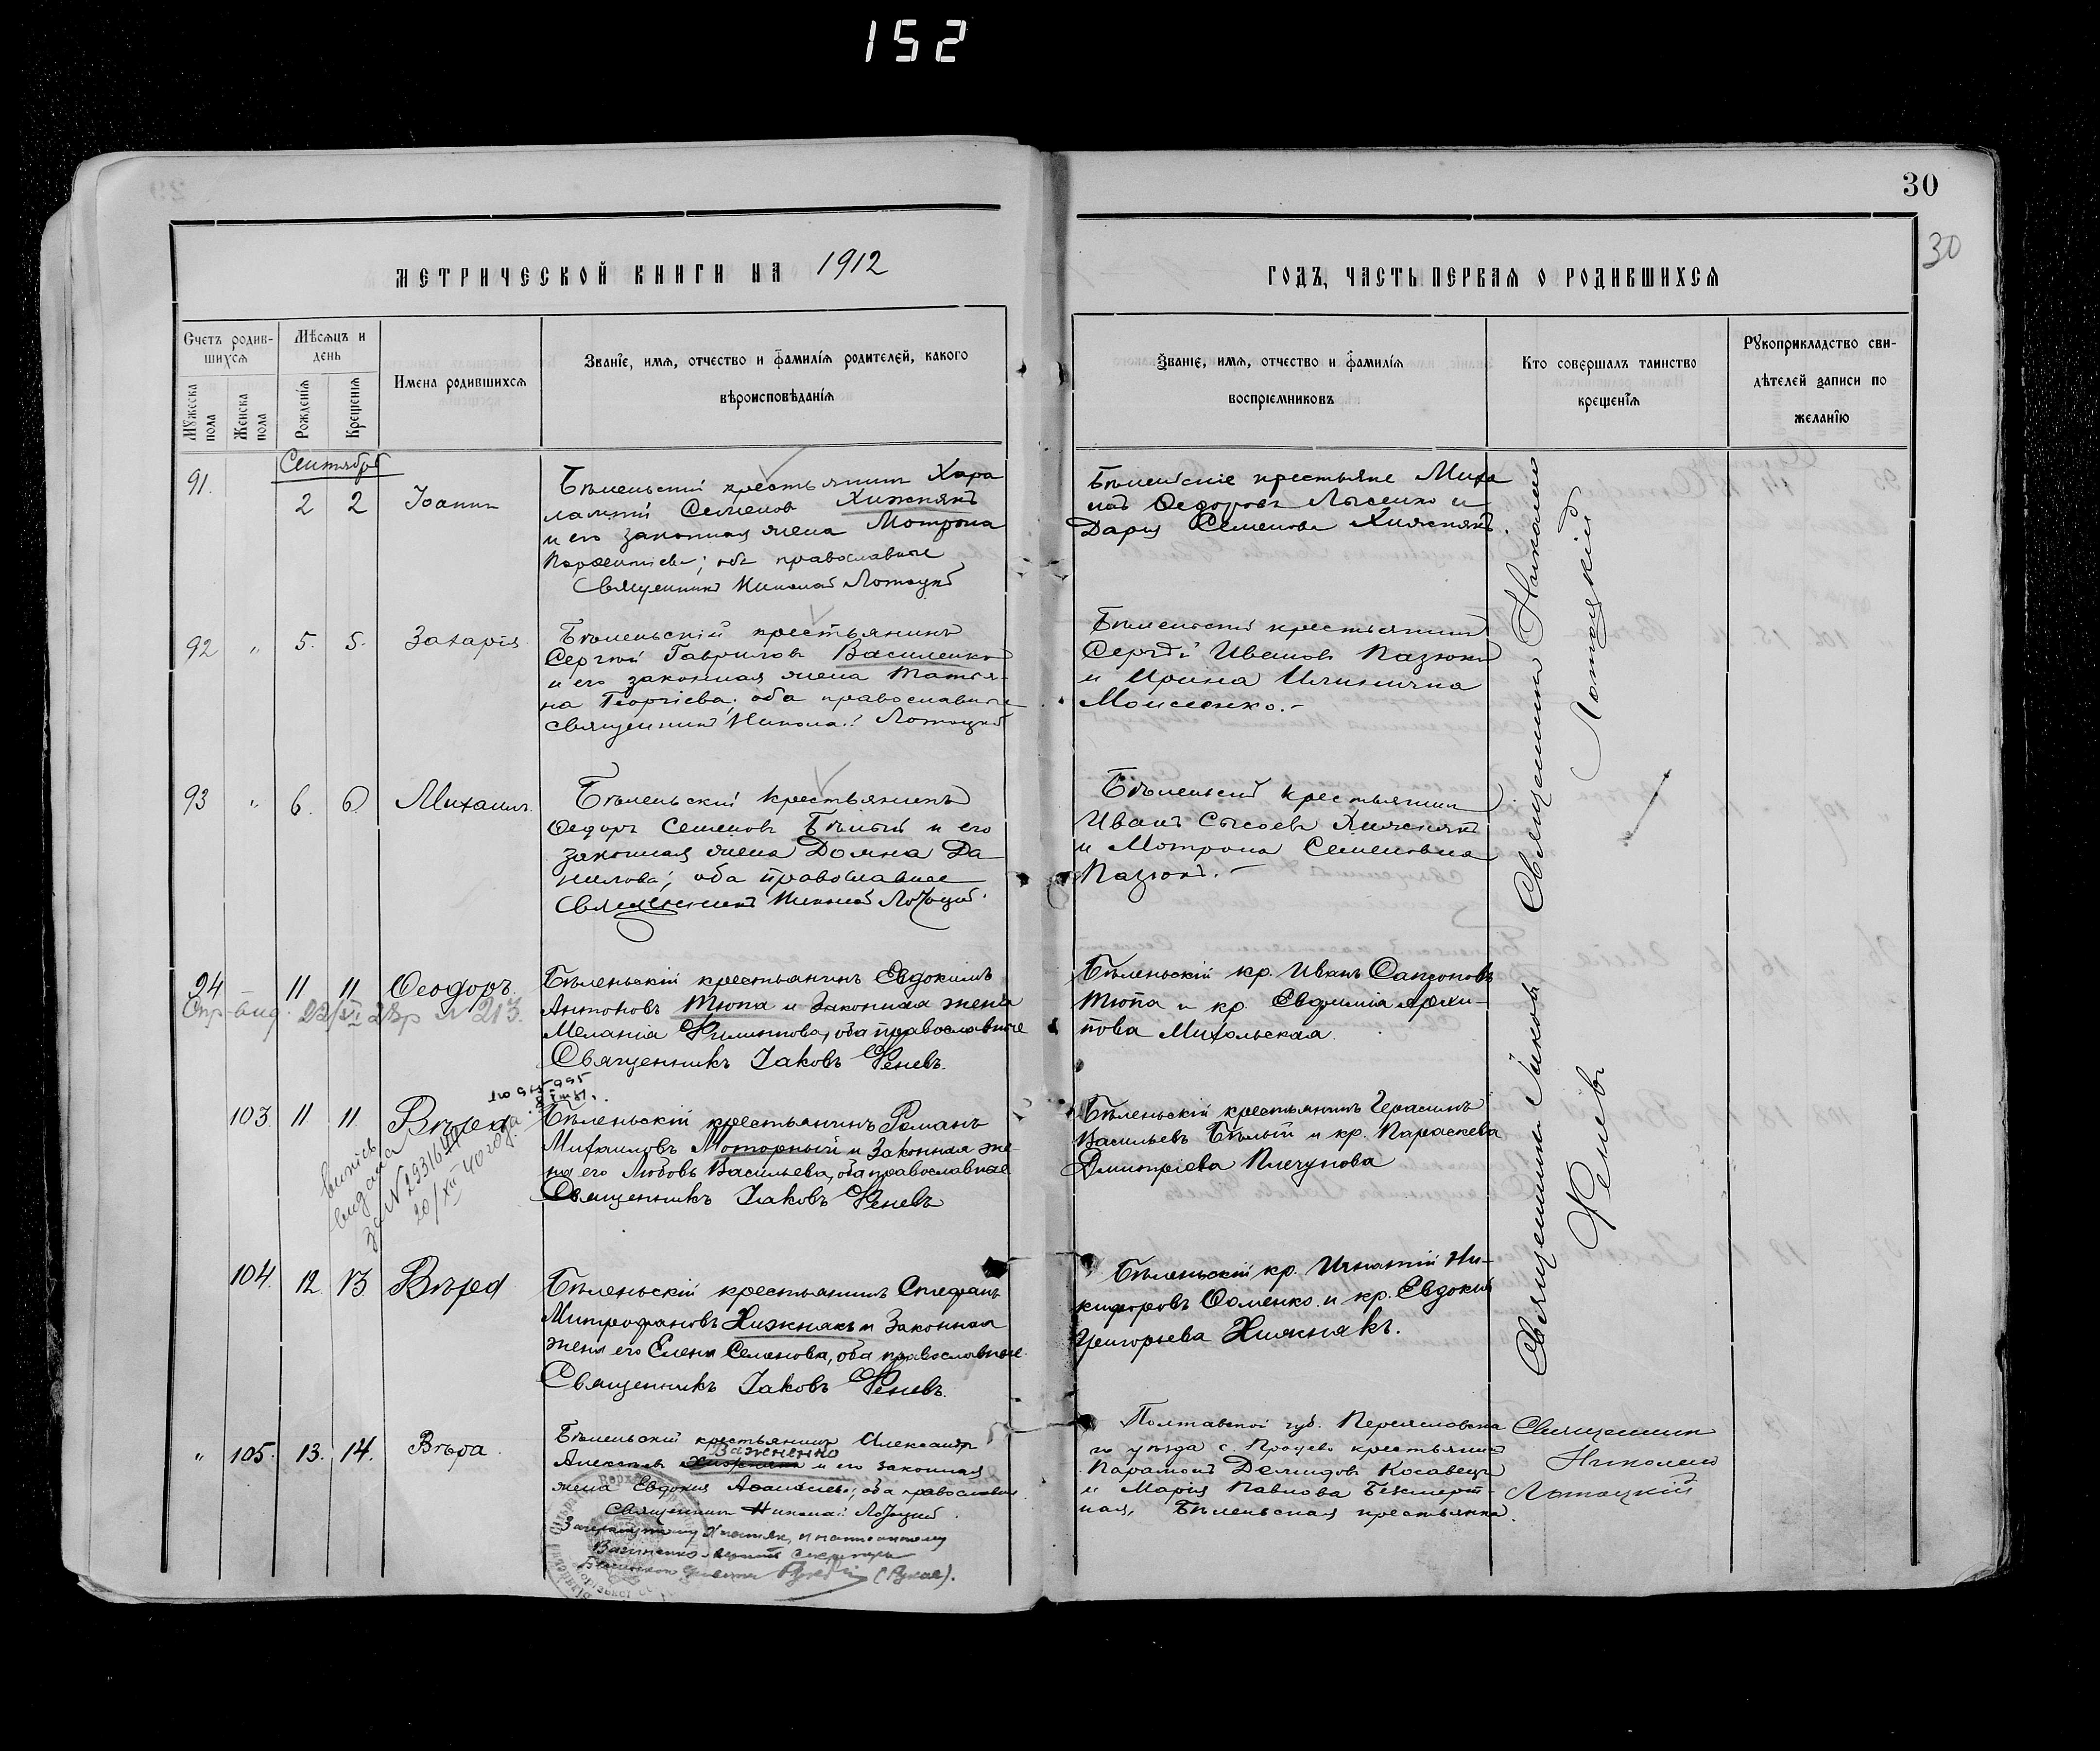 152
30
30
МЕТРИЧЕСКОЙ КНИГИ НА 1912
ГОДЪ, ЧАСТЬ ПЕРВАЯ О РОДИВШИХСЯ
Счетъ родив-
шихся
Мужеска пола
Женска пола
Мѣсяцъ и
день
Рожденія
Крещенія
Имена родившихся
Званіе, имя, отчество и фамилія родителей, какого
вѣроисповѣданія
Званіе, имя, отчество и фамилія
воспріемниковъ
Кто совершалъ таинство
крещенія
Рукоприкладство сви-
дѣтелей записи по
желанію
Сентябрь
91. 2 2 Іоаннъ
Бѣленьскій крестьянинъ Хара
лампій Семеновъ Хижнякъ
и его законная жена Мотрона
Парфентіева; оба православные
Священникъ Николай Лотоцкій
Бѣленьскіе крестьяне Миха
илъ Федоровъ Лысенко и
Дарія Семенова Хижнякъ.
92 " 5. 5. Захарія
Бѣленьскій крестьянинъ
Сергій Гавриловъ Василенко
и его законная жена Татья-
на Георгіева; оба православные
Священникъ Николай Лотоцкій
Бѣленьскій крестьянинъ
Сергѣй Ивановъ Пазюкъ
и Ирина
Моисеенко.-
93 " 6. 6. Михаилъ.
Бѣленьскій крестьянинъ
Федоръ Семеновъ Бѣлый и его
законная жена Домна Да-
нилова; оба православные
Священникъ Николай Лотоцкій.
Бѣленьскій крестьянинъ
Иванъ Сысоевъ Хижнякъ
и Мотрона Семеновна
Пазюкъ.-
94 11 11 Ѳеодоръ.
№ 213.
Бѣленьскій крестьянинъ Евдокимъ
Антоновъ Тюпа и законная жена
Меланія Филиппова, оба православные
Священникъ Іаковъ Феневъ.
Бѣленьскій кр. Иванъ Сапроновъ
Тюпа и кр. Евфимія Архи-
пова Михольская.
103. 11 11 Вѣра.
випись
видана
за № 29316
20/XII 40 года
Бѣленьскій крестьянинъ Романъ
Михаиловъ Моторный и законная же-
на его Любовь Васильева, оба православные
Священникъ Іаковъ Феневъ
Бѣленьскій крестьянинъ Герасимъ
Васильевъ Бѣлый и кр. Параскева
Дмитріева Плечунова
104. 12 13 Вѣра
Бѣленьскій крестьянинъ Стефанъ
Митрофановъ Хижнякъ и законная
жена его Елена Семенова, оба православные.
Священникъ Іаковъ Феневъ.
Бѣленьскій кр. Игнатій Ни-
кифоровъ Фоменко и кр. Евдокія
Григорьева Хижнякъ.
" 105. 13. 14. Вѣра.
Бѣленьскій крестьянинъ Александръ
Важненко
Алексѣевъ Хижнякъ и его законная
жена Евдокія оба православные
Священникъ Николай Лотоцкій.
Полтавской губ. Переяславска
го уѣзда с. Процева крестьянинъ
Парамонъ Демидовъ Косавецъ
и Марія Павлова Безсмерт-
ная, Бѣленьская крестьянка.
Священникъ Николай
Лотоцкій
Священникъ Іаковъ
Феневъ
Священникъ
Николай
Лотоцкій